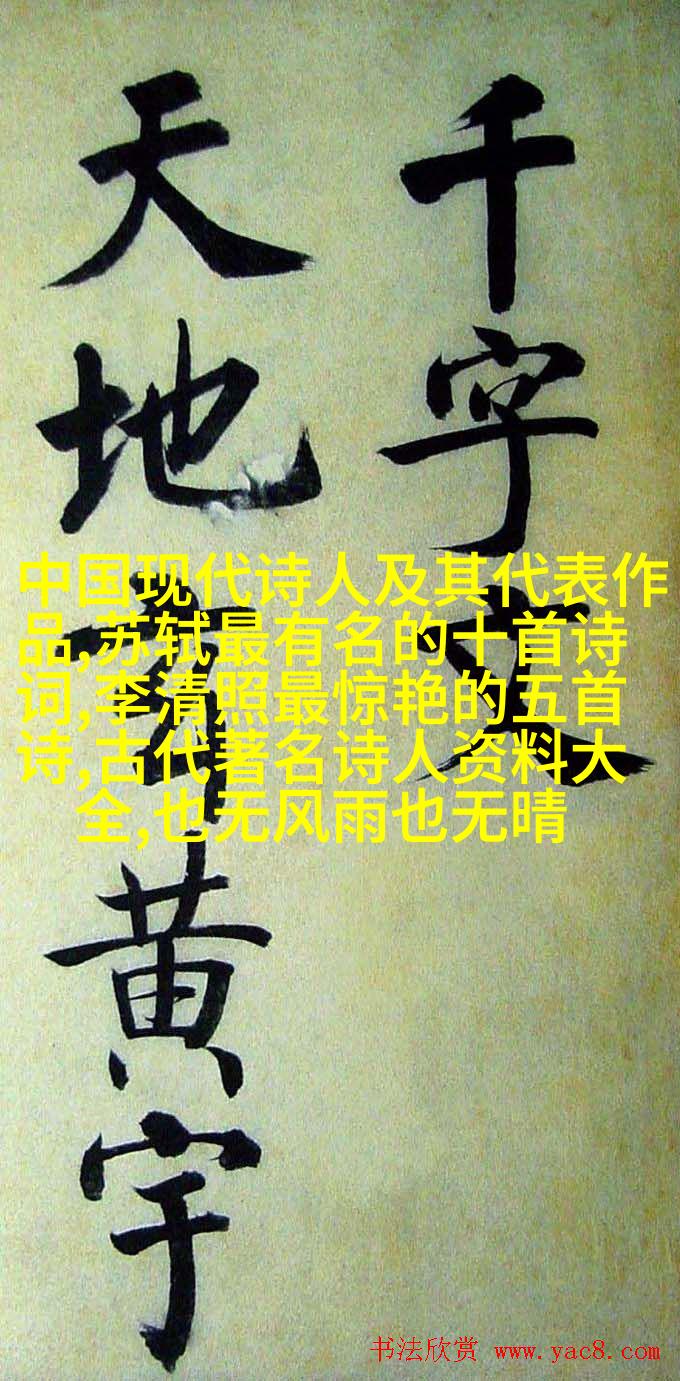 千字文
天地黄宇
中国现代诗人及其代表作
品,苏轼最有名的十首诗
词,李清照最惊艳的五首
诗,古代著名诗人资料大
全,也无风雨也无晴
书法欣赏 www.yac8.com